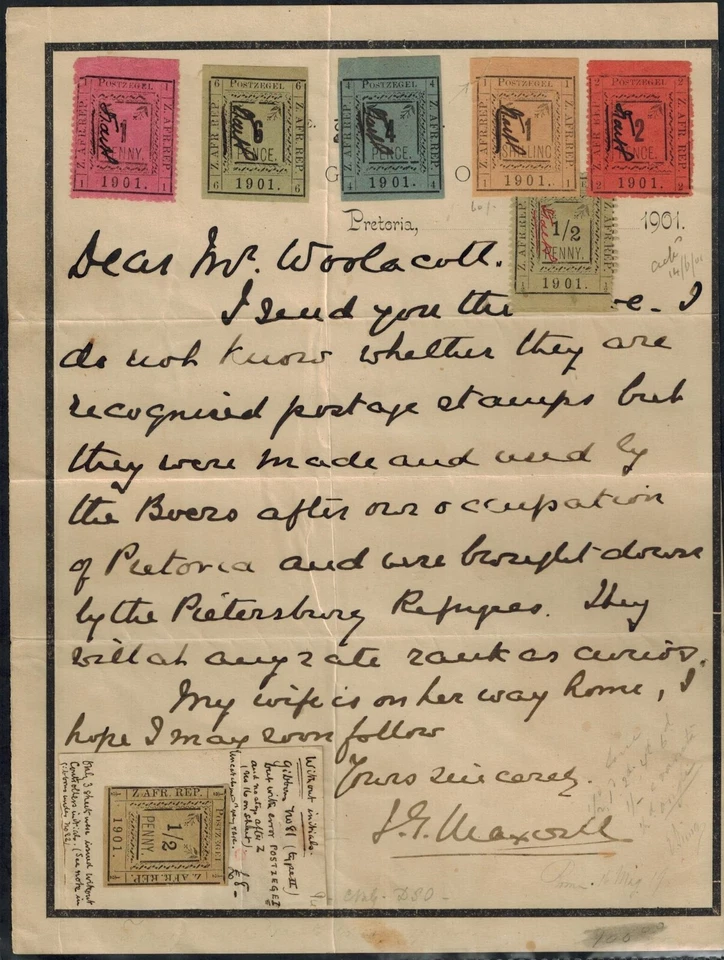 1 POSTZEGEL 1
Z. AFR. REP.
1
PENNY.
1 1901. 1
6 POSTZEGEL 6
Z. AFR. REP.
6
PENCE.
6 1901. 6
4 POSTZEGEL 4
Z. AFR. REP.
4
PENCE.
4 1901. 4
1 POSTZEGEL 1
Z. AFR. REP.
1
1 1901. 1
2 POSTZEGEL 2
Z. AFR. REP.
2
PENCE.
2 1901. 2
G O
Pretoria, 1901.
1/2
PENNY.
1901.
Dear Mr. Woolacott.
I send you the e. I
do not know whether they are
recognised postage stamps but
they were made and used by
the Boers after our occupation
of Pretoria and were brought down
by the Pietersburg Refugees. They
will at any rate rank as curios.
My wife is on her way home, I
hope I may soon follow
Yours sincerely.
J. G. Maxwell
DSO
Only 3 sheets were issued without
Controllers initials. (See note in
Gibbons under No 82).
Z. AFR. REP.
POSTZEGEL
1/2
PENNY
1901.
Z. AFR. REP
Without initials.
Gibbons No 81 (type H)
but with error POSTZEGEI
and no stop after Z
(No 16 on sheet)
£8-